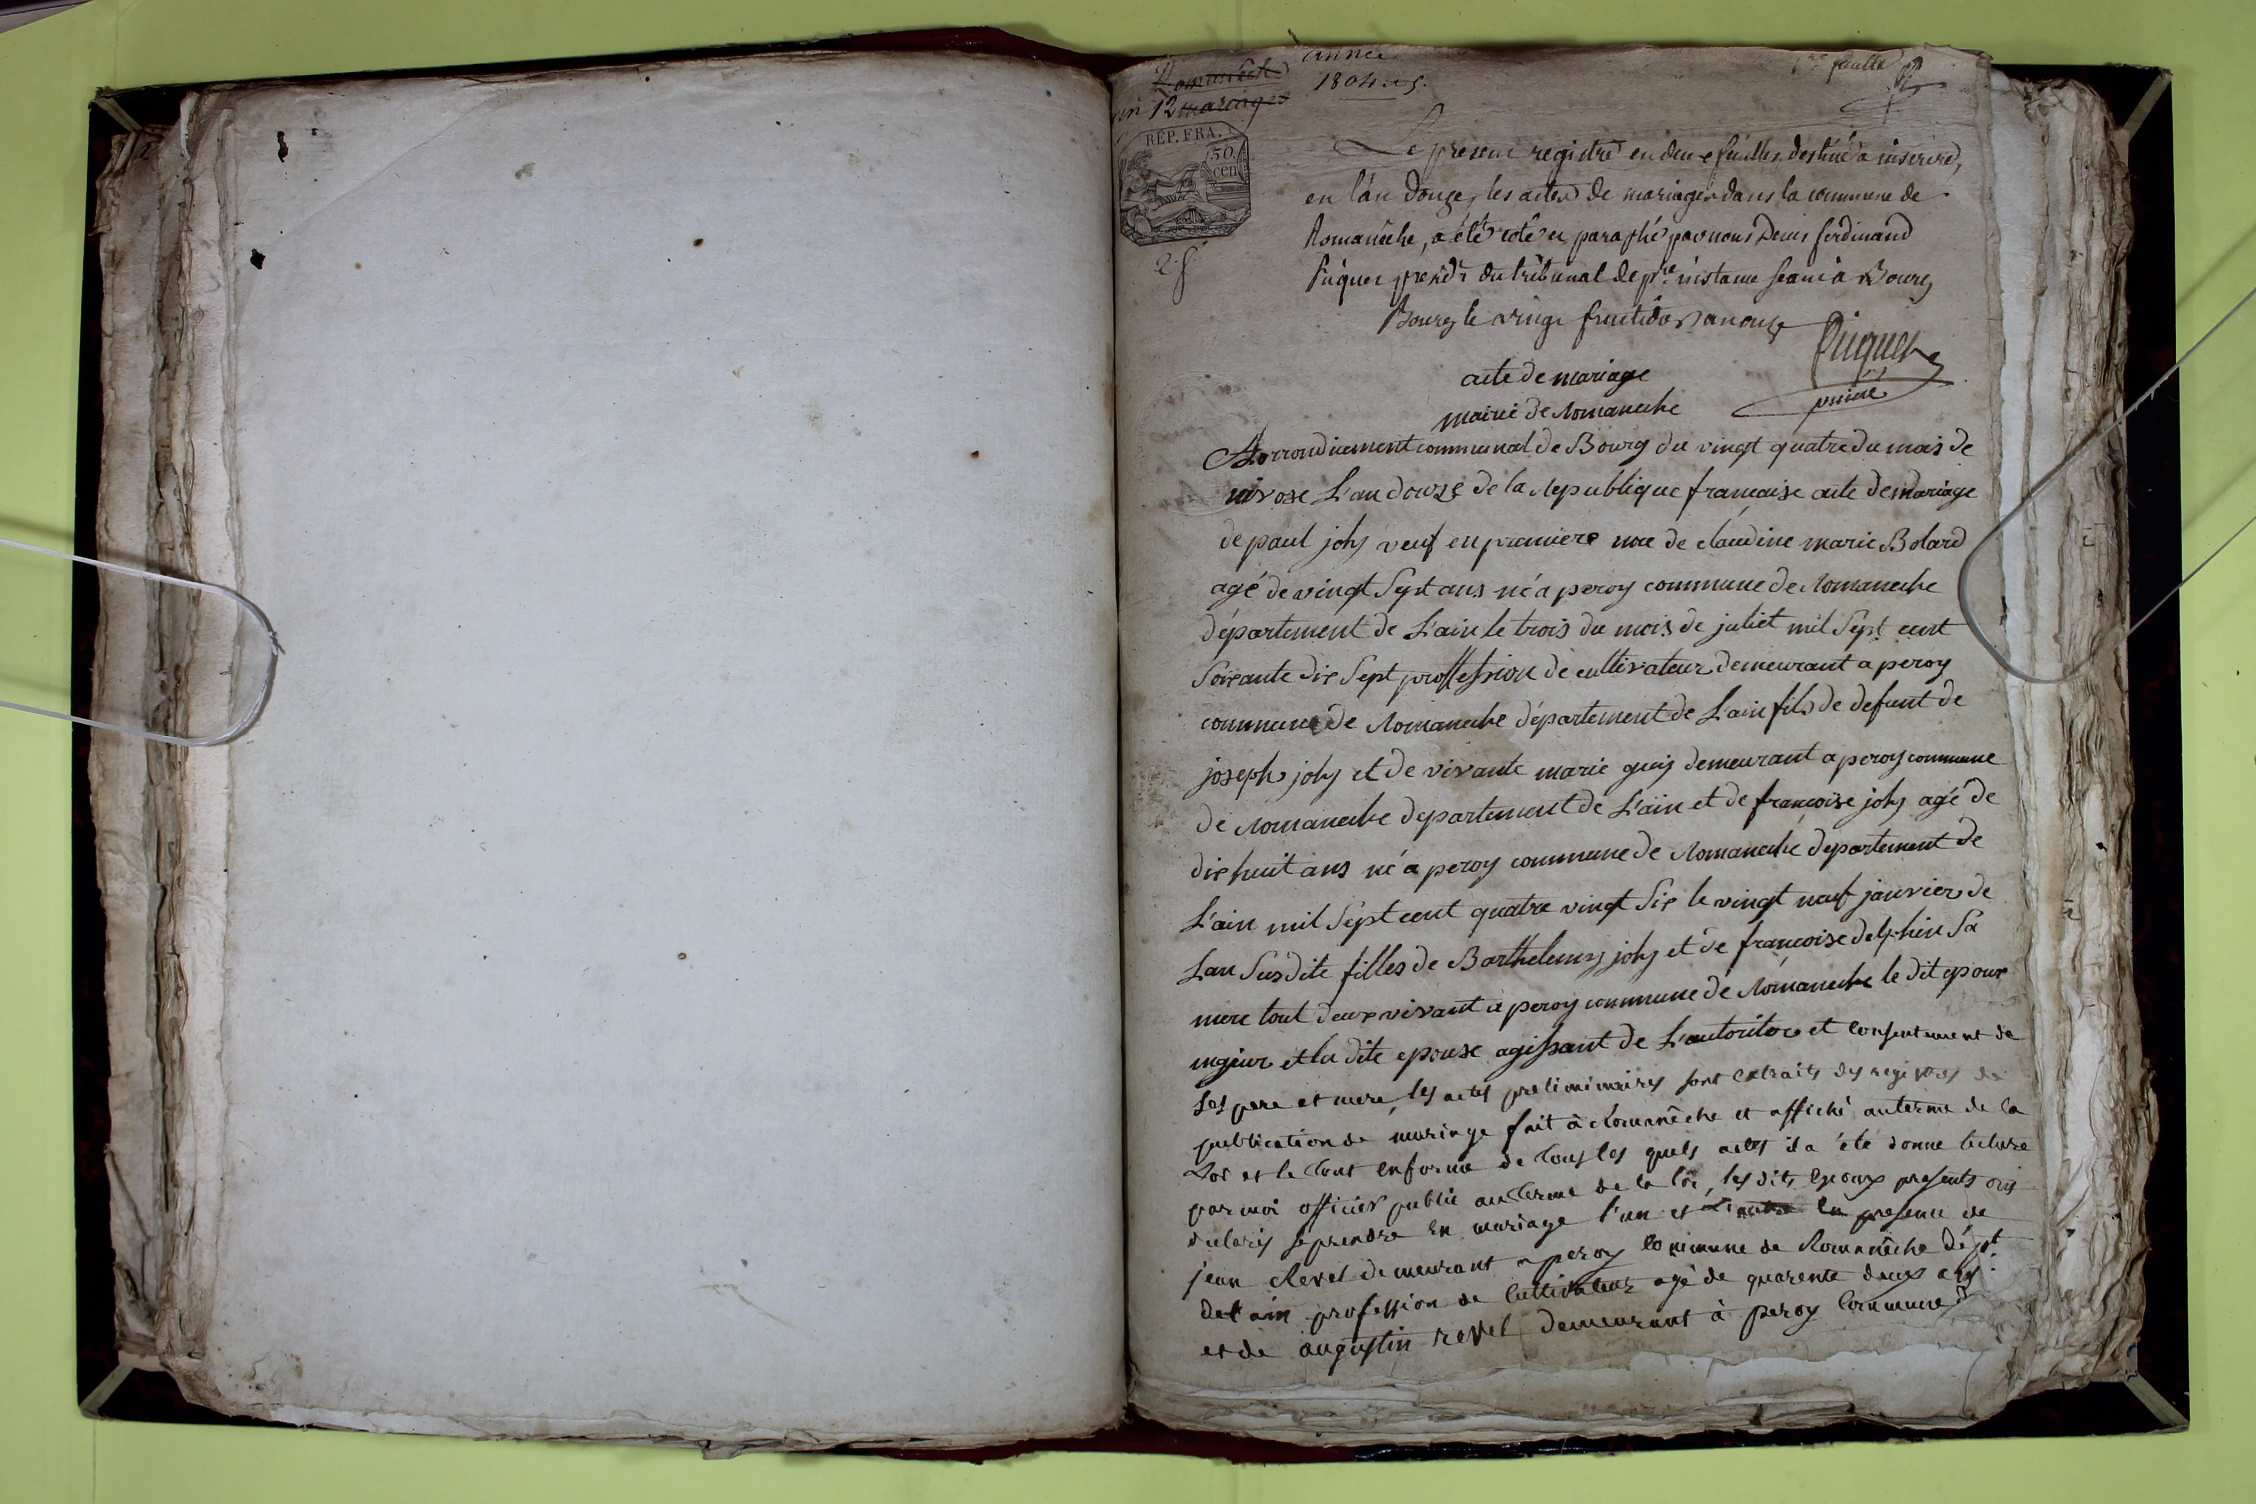 année
Romanêche
an 12 mariages
1804 et 5.
1re feuille
RÉP. FRA.
50. cen
2. f
Le présent registre en deux feuilles, destiné à inscrire,
en l'an douze, les actes de mariages dans la commune de
Romanêche, a été coté et paraphé par nous Denis ferdinand
Piquet présidt du tribunal de pre instance séant à Bourg
Bourg le vingt fructidor an onze
Piquet
acte de mariage
mairie de Romaneche
Arrondicement communal de Bourg du vingt quatre du mois de
nivose L'an douze de la Republique francaise acte de mariage
de paul joly veuf en premiere noce de claudine marie Bolard
agé de vingt Sept ans né a peroy commune de Romaneche
département de L'ain le trois du mois de juliet mil Sept cent
Soixante dix Sept proffession de cultivateur demeurant a peroy
commune de Romaneche département de L'ain fils de defunt de
joseph joly et de vivante marie guy demeurant a peroy commune
de Romaneche departement de L'ain et de francoise joly agé de
dix huit ans né a peroy commune de Romaneche departement de
L'ain mil Sept cent quatre vingt Six le vingt neuf janvier de
Lan Susdite filles de Barthelemy joly et de francoise delphin Sa
mere tout deux vivant a peroy commune de Romaneche le dit epoux
mgeur et la dite epouse agissant de L'autoritoe et consentement de
ses pere et mere, les actes preliminaires sont extraits des registres de
publication de mariage fait à Romanêche et affiché au terme de la
Loi et le tout enforme de tous les quels actes il a été donné lecture
par moi officier public au terme de la loi, les dits epoux presents ont
declarés se prendre en mariage l'un et L'autre en presence de
jean Revel demeurant a peroy commune de Romanêche dépt.
de l'ain profession de cultivateur agé de quarente deux ans.
et de augustin revel demeurant à peroy commune